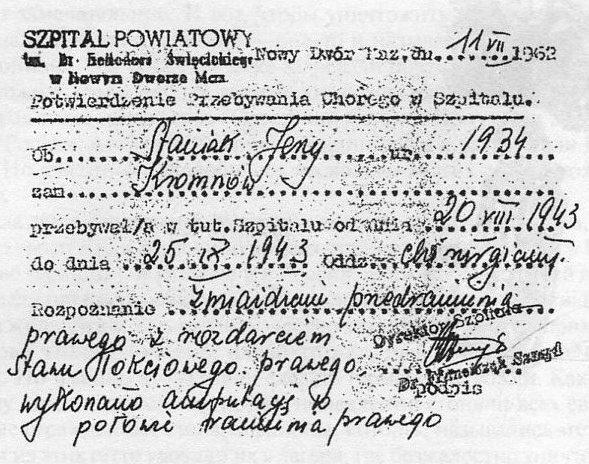 SZPITAL POWIATOWY
im. Dr Heliodora Święcickiego
w Nowym Dworze Maz.
Nowy Dwór Maz.dn. 11 VII 1962
Potwierdzenie Przebywania Chorego w Szpitalu.
Ob. Staniak Jerzy ur. 1934
zam. Kromnów
przebywał/a w tut.Szpitalu od dnia 20 VIII 1943
do dnia 25 IX 1943 Oddz. chirurgiczny.
Rozpoznanie Zmiażdżenie przedramienia
prawego z rozdarciem
Dyrektor Szpitala
Stawu łokciowego prawego
Dr Franciszek
wykonano amputację w
podpis
połowie ramienia prawego